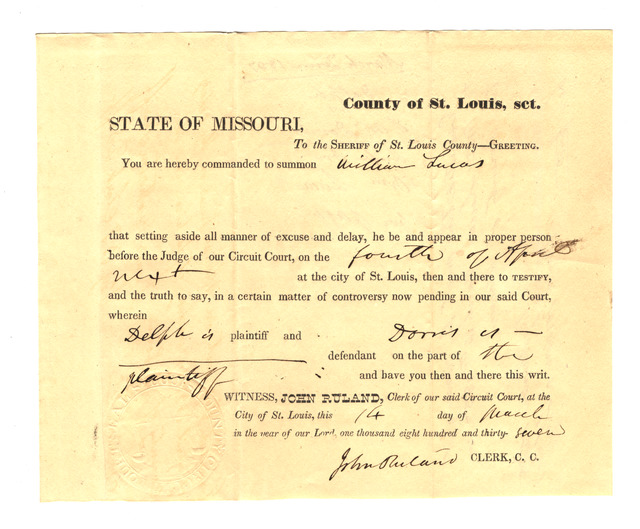 County of St. Louis, sct.
STATE OF MISSOURI,
To the SHERIFF of St. Louis County—GREETING.
You are hereby commanded to summon William Lucas
that setting aside all manner of excuse and delay, he be and appear in proper person
before the Judge of our Circuit Court, on the fourth of April
next at the city of St. Louis, then and there to TESTIFY,
and the truth to say, in a certain matter of controversy now pending in our said Court,
wherein
Delph is plaintiff and Dorris is —
defendant on the part of the
plaintiff and have you then and there this writ.
WITNESS, JOHN RULAND, Clerk of our said Circuit Court, at the
City of St. Louis, this 14 day of March
in the year of our Lord, one thousand eight hundred and thirty-seven
John Ruland CLERK, C. C.